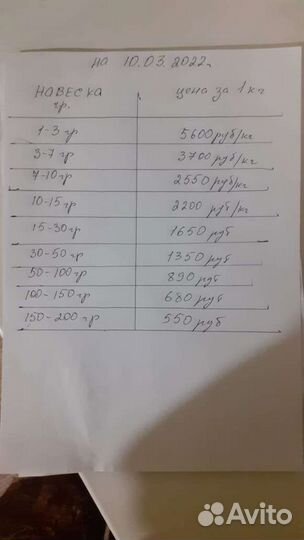 на 10.03.2022г
НАВЕСКА гр. цена за 1 кг
1-3 гр 5600 руб/кг
3-7 гр 3700 руб/кг
7-10 гр 2550 руб/кг
10-15 гр 2200 руб/кг
15-30 гр 1650 руб
30-50 гр 1350 руб
50-100 гр 890 руб
100-150 гр 680 руб
150-200 гр 550 руб
Avito